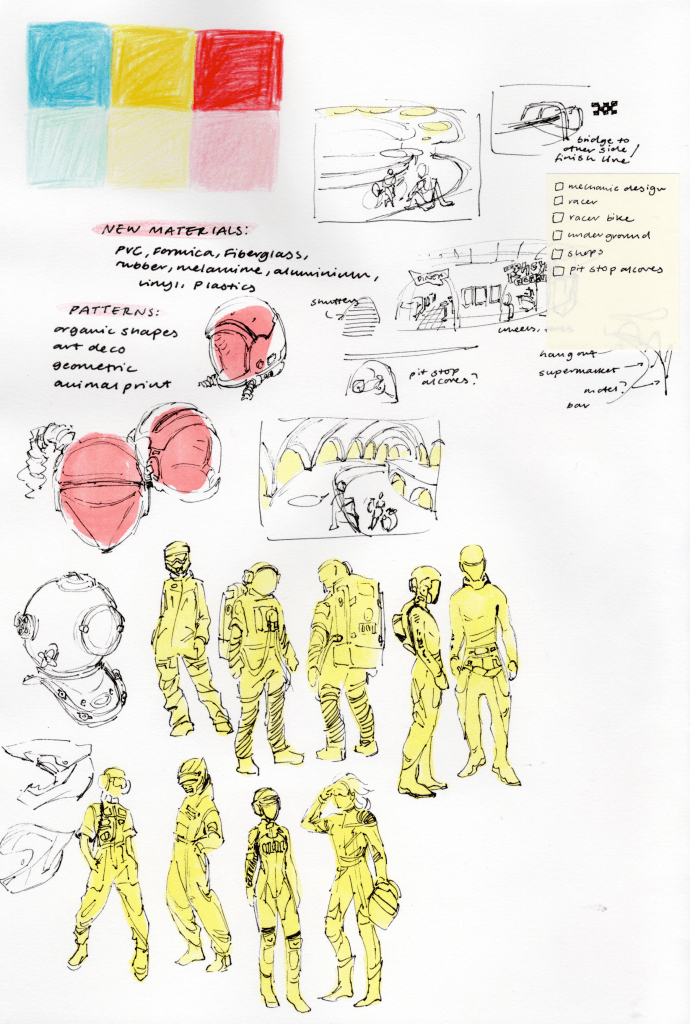 bridge to
other side /
finish line
mechanic design
racer
racer bike
underground
shops
pit stop alcoves
NEW MATERIALS:
PVC, Formica, Fiberglass,
rubber, melamine, aluminium,
vinyl, plastics
PATTERNS:
organic shapes
art deco
geometric
animal print
DINER
shutters
wheels,
pit stop
alcoves?
hang out
supermarket
motel?
bar